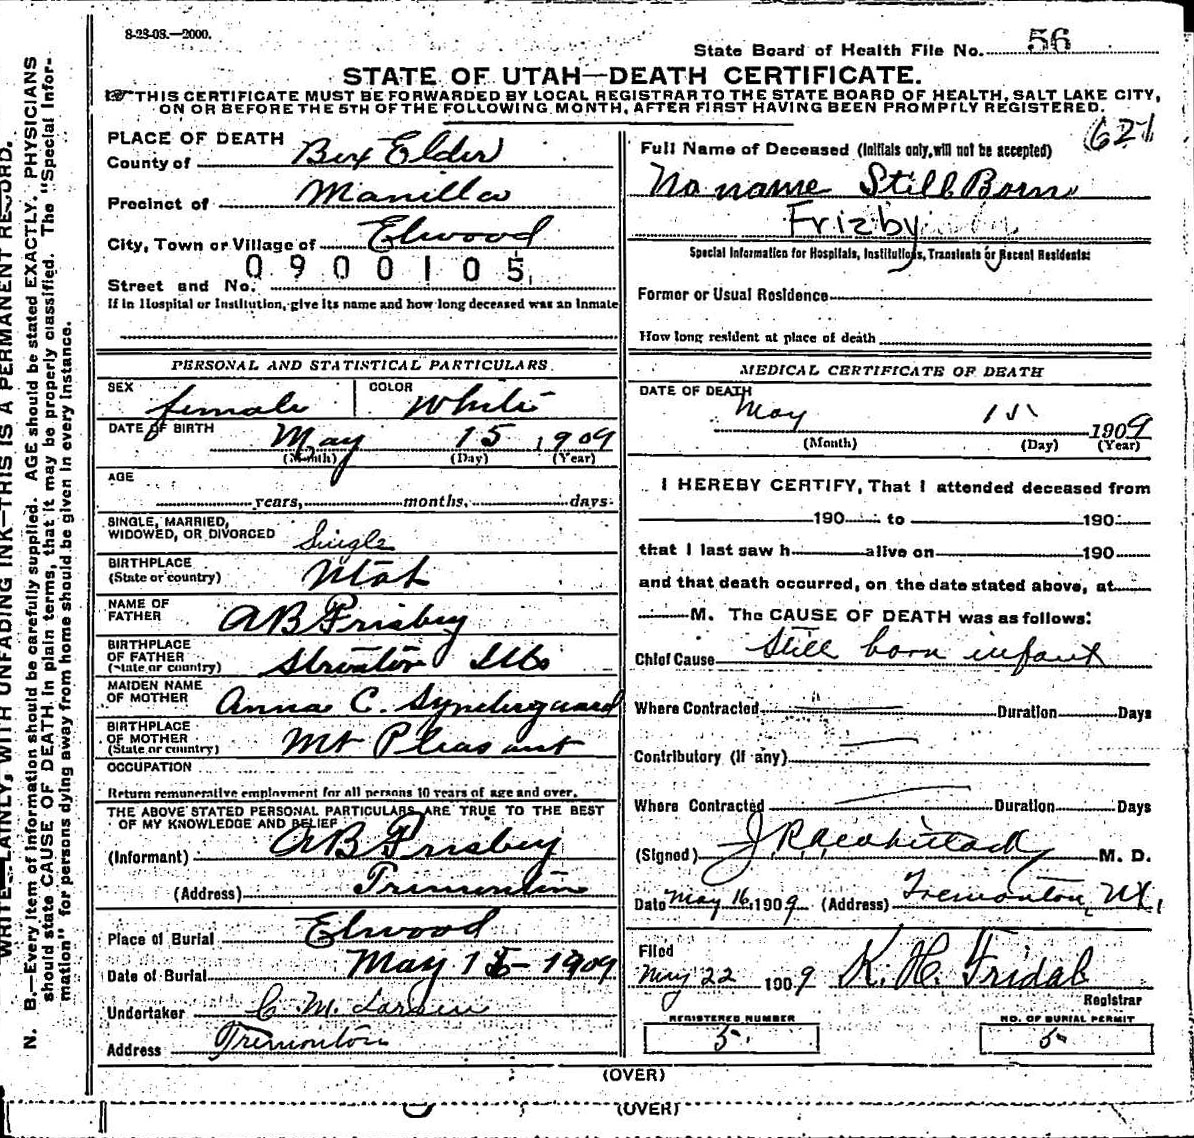 8-23-08.—2000.
State Board of Health File No. 56
STATE OF UTAH—DEATH CERTIFICATE.
☞THIS CERTIFICATE MUST BE FORWARDED BY LOCAL REGISTRAR TO THE STATE BOARD OF HEALTH, SALT LAKE CITY,
ON OR BEFORE THE 5TH OF THE FOLLOWING MONTH, AFTER FIRST HAVING BEEN PROMPTLY REGISTERED.
PLACE OF DEATH
County of Box Elder
Precinct of Manilla
City, Town or Village of Elwood
0 9 0 0 1 0 5
Street and No.
If in Hospital or Institution, give its name and how long deceased was an Inmate
PERSONAL AND STATISTICAL PARTICULARS
SEX female COLOR White
DATE OF BIRTH May 15, 1909
(Month) (Day) (Year)
AGE
years, months, days
SINGLE, MARRIED,
WIDOWED, OR DIVORCED Single
BIRTHPLACE
(State or country) Utah
NAME OF
FATHER A B Frisbey
BIRTHPLACE
OF FATHER
(State or country) Streator Ills
MAIDEN NAME
OF MOTHER Anna C. Syndergaard
BIRTHPLACE
OF MOTHER
(State or country) Mt Pleasant
OCCUPATION
Return remunerative employment for all persons 10 years of age and over.
THE ABOVE STATED PERSONAL PARTICULARS ARE TRUE TO THE BEST
OF MY KNOWLEDGE AND BELIEF
(Informant) A B Frisbey
(Address) Tremonton
Place of Burial Elwood
Date of Burial May 15-1909
Undertaker C. M. Larsen
Address Tremonton
621
Full Name of Deceased (Initials only, will not be accepted)
No name Still Born
Frizby
Special Information for Hospitals, Institutions, Transients or Recent Residents:
Former or Usual Residence
How long resident at place of death
MEDICAL CERTIFICATE OF DEATH
DATE OF DEATH
May 15 1909
(Month) (Day) (Year)
I HEREBY CERTIFY, That I attended deceased from
190 to 190
that I last saw h alive on 190
and that death occurred, on the date stated above, at
M. The CAUSE OF DEATH was as follows:
Chief Cause Still born infant
Where Contracted Duration Days
Contributory (if any)
Where Contracted Duration Days
(Signed) M. D.
Date May 16, 1909 (Address) Tremonton, Ut,
Filed
May 22 1909 K. H. Fridal
Registrar
REGISTERED NUMBER
5
NO. OF BURIAL PERMIT
5
(OVER)
(OVER)
WRITE PLAINLY, WITH UNFADING INK—THIS IS A PERMANENT RECORD.
N. B.—Every item of information should be carefully supplied. AGE should be stated EXACTLY. PHYSICIANS
should state CAUSE OF DEATH in plain terms, that it may be properly classified. The "Special Infor-
mation" for persons dying away from home should be given in every instance.